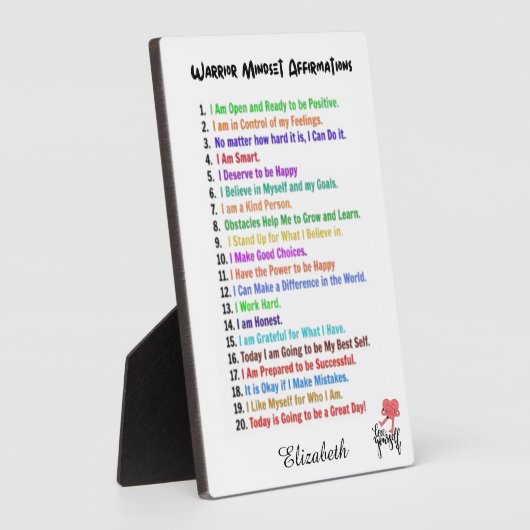 Warrior Mindset Affirmations
1. I Am Open and Ready to be Positive.
2. I am in Control of my Feelings.
3. No matter how hard it is, I Can Do it.
4. I Am Smart.
5. I Deserve to be Happy
6. I Believe in Myself and my Goals.
7. I am a Kind Person.
8. Obstacles Help Me to Grow and Learn.
9. I Stand Up for What I Believe in.
10. I Make Good Choices.
11. I Have the Power to be Happy
12. I Can Make a Difference in the World.
13. I Work Hard.
14. I am Honest.
15. I am Grateful for What I Have.
16. Today I am Going to be My Best Self.
17. I Am Prepared to be Successful.
18. It is Okay if I Make Mistakes.
19. I Like Myself for Who I Am.
20. Today is Going to be a Great Day!
Elizabeth
Love
yourself